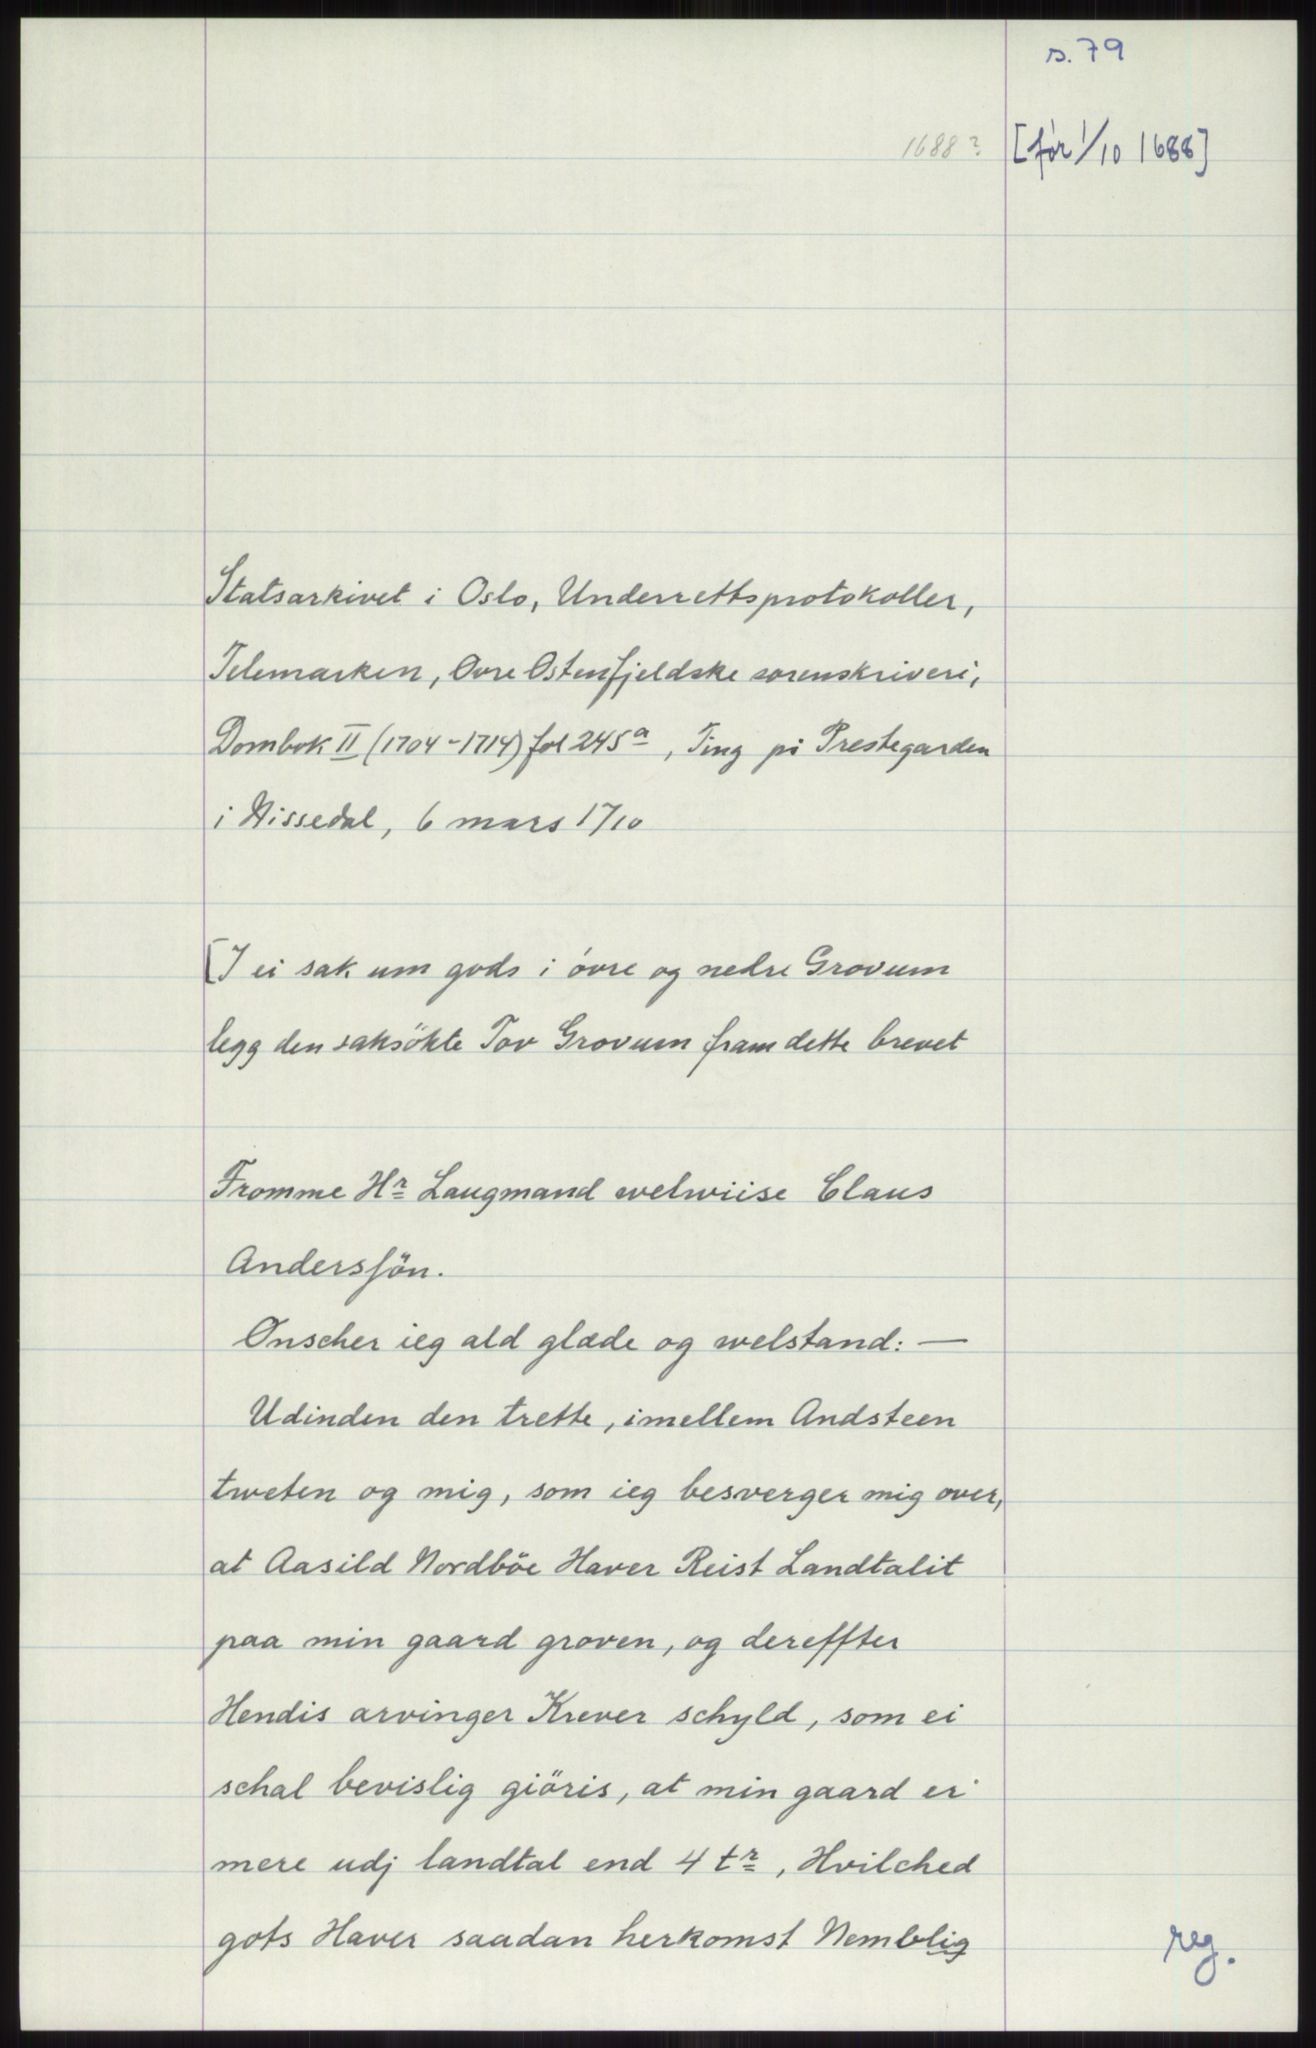 s. 79
1688? [før 1/10 1688]
Statsarkivet i Oslo, Underrettsprotokoller,
Telemarken, Øvre Østenfjeldske sorenskriveri,
Dombok II (1704-1714) fol 245a, Ting på Prestegarden
i Nissedal, 6 mars 1710
[I ei sak um gods i övre og nedre Grovum
legg den saksökte Tov Grovum fram dette brevet
Fromme Hr Laugmand welwiise Claus
Andersſön.
Onscher ieg ald glæde og welstand: —
Udinden den trette, imellem Andsteen
tweten og mig, som ieg besverger mig over,
at Aasild Nordböe Haver Reist Landtalit
paa min gaard groven, og dereffter
Hendis arvinger Krever schyld, som ei
schal bevislig giöris, at min gaard er
mere udj landtal end 4 tr, Hvilched
gots Haver saadan herkomst Nemblig
reg.